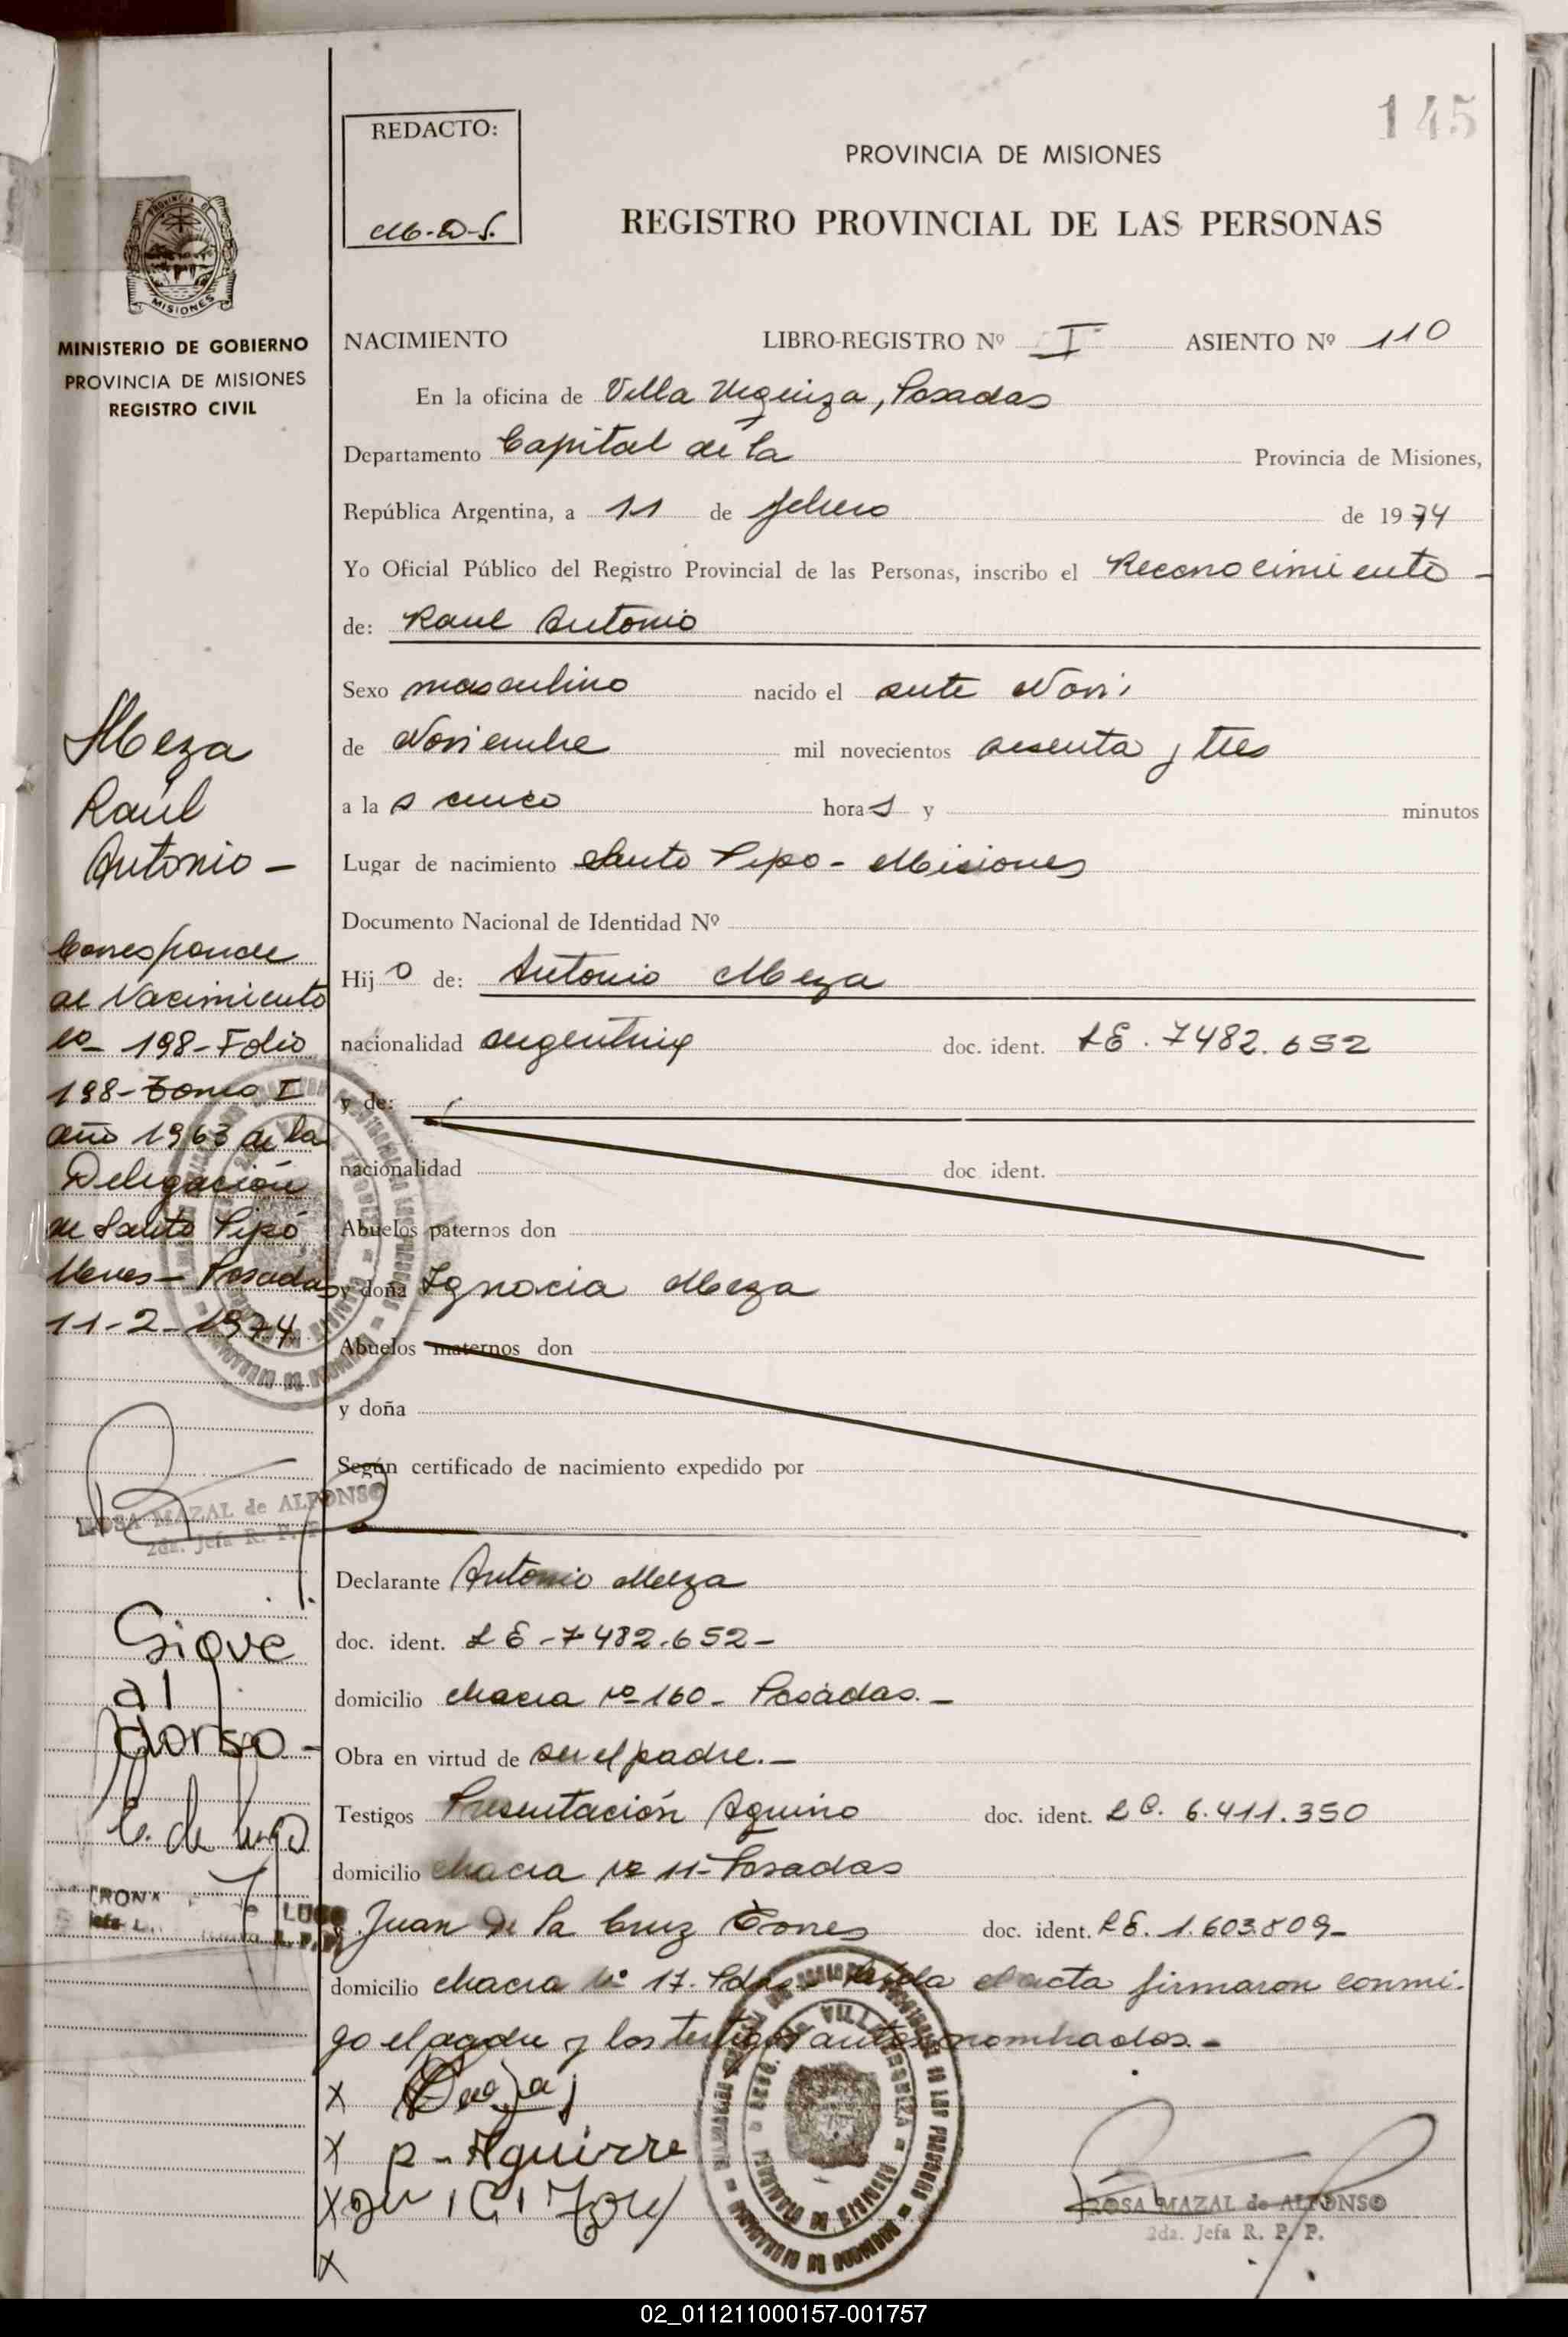 145
REDACTO:
PROVINCIA DE MISIONES
REGISTRO PROVINCIAL DE LAS PERSONAS
MISIONES
MINISTERIO DE GOBIERNO
PROVINCIA DE MISIONES
REGISTRO CIVIL
NACIMIENTO LIBRO-REGISTRO Nº I ASIENTO Nº 110
En la oficina de Villa Urquiza, Posadas
Departamento Capital de la Provincia de Misiones,
República Argentina, a 11 de febrero de 1974
Yo Oficial Público del Registro Provincial de las Personas, inscribo el Reconocimiento -
de: Raul Antonio
Sexo masculino nacido el
de Noviembre mil novecientos sesenta y tres
a las cinco horas y minutos
Lugar de nacimiento Santo Pipo - Misiones
Documento Nacional de Identidad Nº
Hijo de: Antonio Meza
nacionalidad argentina doc. ident. LE. 7482.652
y de:
nacionalidad doc. ident.
Abuelos paternos don
y doña Ignacia Meza
Abuelos maternos don
y doña
Según certificado de nacimiento expedido por
Declarante Antonio Meza
doc. ident. LE - 7482.652 -
domicilio chacra nº 160 - Posadas. -
Obra en virtud de ser el padre. -
Testigos Presentación Aquino doc. ident. LC. 6.411.350
domicilio chacra nº 11 - Posadas
y Juan de la Cruz Torres doc. ident. LE. 1.603.809 -
domicilio chacra Nº 17. Pdas. Leída el acta firmaron conmi-
go el padre y los testigos antes nombrados. -
X
X P - Aguirre
X
X
ROSA MAZAL de ALFONSO
2da. Jefa R. P. P.
Meza
Raúl
Antonio -
Corresponde
al Nacimiento
nº 198 - Folio
198 - Tomo I
año 1963 de la
Delegación
de Santo Pipó
Mnes - Posadas
11 - 2 - 1974
ROSA MAZAL de ALFONSO
2da. Jefa R. P. P.
Sigue
al
dorso -
02_011211000157-001757